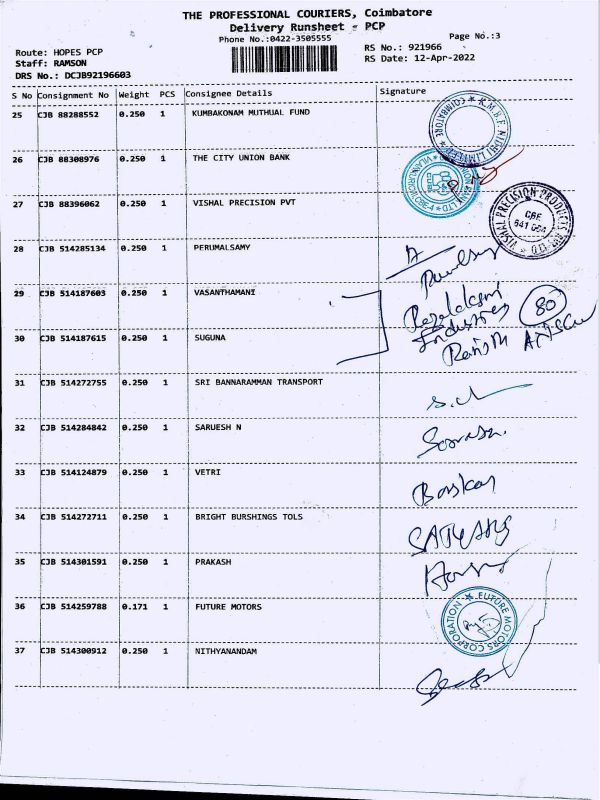 THE PROFESSIONAL COURIERS, Coimbatore
Delivery Runsheet - PCP
Phone No.:0422-3505555
Page No.:3
Route: HOPES PCP
RS No.: 921966
Staff: RAMSON
RS Date: 12-Apr-2022
DRS No.: DCJB92196603
S No Consignment No Weight PCS Consignee Details Signature
25 CJB 88288552 0.250 1 KUMBAKONAM MUTHUAL FUND
COIMBATORE
26 CJB 88308976 0.250 1 THE CITY UNION BANK
27 CJB 88396062 0.250 1 VISHAL PRECISION PVT
VISHAL PRECISION PRODUCTS
CBE
641 004
28 CJB 514285134 0.250 1 PERUMALSAMY
29 CJB 514187603 0.250 1 VASANTHAMANI
Industries
80
30 CJB 514187615 0.250 1 SUGUNA
31 CJB 514272755 0.250 1 SRI BANNARAMMAN TRANSPORT
32 CJB 514284842 0.250 1 SARUESH N
33 CJB 514124879 0.250 1 VETRI
Baskar
34 CJB 514272711 0.250 1 BRIGHT BURSHINGS TOLS
35 CJB 514301591 0.250 1 PRAKASH
36 CJB 514259788 0.171 1 FUTURE MOTORS
FUTURE MOTORS CORPORATION
37 CJB 514300912 0.250 1 NITHYANANDAM